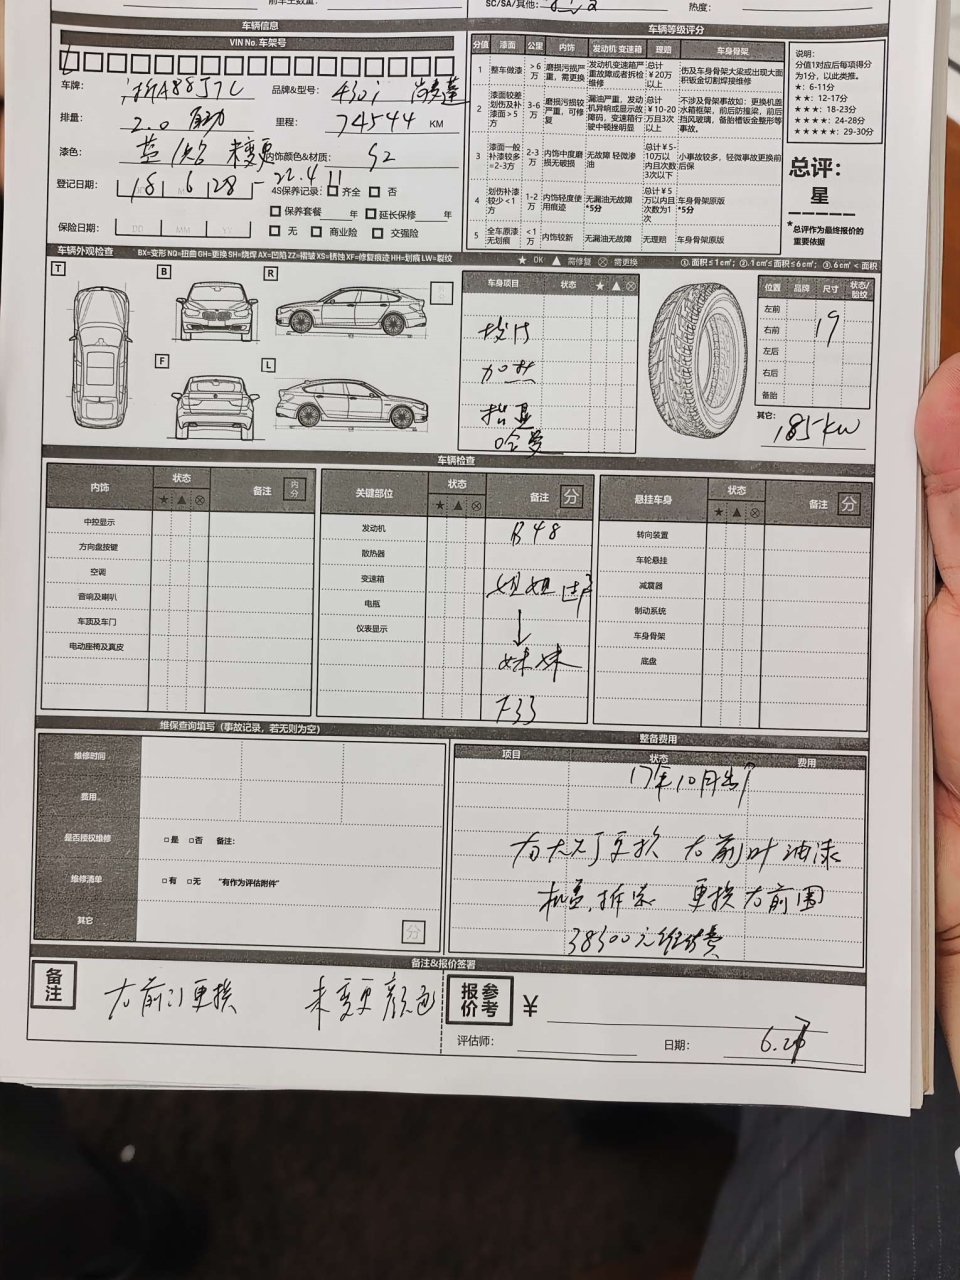 前车主数量：
SC/SA/其他：
热度：
车辆信息
VIN No. 车架号
车牌：
品牌&型号： 430i
排量： 2.0
里程： 74544 KM
漆色： 未变更
内饰颜色&材质：
登记日期： 18 6 28 - 22.4.11
4S保养记录： 齐全 否
保养套餐 年 延长保修 年
保险日期： DD MM YY
无 商业险 交强险
车辆等级评分
分值 漆面 公里 内饰 发动机 变速箱 理赔 车身骨架
1 整车做漆 >6万 磨损污损严重，需更换 发动机变速箱严重故障或者拆检维修 总计￥20万以上 伤及车身骨架大梁或出现大面积钣金切割焊接维修
2 漆面较差划伤及补漆面>5方 3-6万 磨损污损较严重，可修复 漏油严重，发动机异响或显示故障码，变速箱行驶中顿挫明显 总计￥10-20万且3次以上 不涉及骨架事故如：更换机盖水箱框架，前后防撞梁，前后挡风玻璃，备胎槽钣金整形等事故。
3 漆面一般补漆较多=2-3方 2-3万 内饰中度磨损无破损 无故障 轻微渗油 总计￥5-10万以内且次数3次以下 小事故较多，轻微事故更换前后保
4 划伤补漆较少<1方 1-2万 内饰轻度使用痕迹 无漏油无故障*5分 总计￥5万以内且次数为1次 车身骨架原版*5分
5 全车原漆无划痕 <1万 内饰较新 无漏油无故障 无理赔 车身骨架原版
说明：
分值1对应后每项得分为1分，以此类推。
★：6-11分
★★：12-17分
★★★：18-23分
★★★★：24-28分
★★★★★：29-30分
总评：
星
*总评作为最终报价的重要依据
车辆外观检查 BX=变形 NQ=扭曲 GH=更换 SH=烧焊 AX=凹陷 ZZ=褶皱 XS=锈蚀 XF=修复痕迹 HH=划痕 LW=裂纹
★ OK ▲ 需修复 ⊗ 需更换 ①.面积≤1c㎡；②.1c㎡≤面积≤6c㎡；③.6c㎡＜面积
T B R
F L
车身项目 状态 ★ ▲ ⊗
加热
抬显
哈曼
位置 品牌 尺寸 状态/胎纹
左前
右前 19
左后
右后
备胎
其它： 185kw
车辆检查
内饰 状态 备注 内分
★ ▲ ⊗
中控显示
方向盘按键
空调
音响及喇叭
车顶及车门
电动座椅及真皮
关键部位 状态 备注 分
★ ▲ ⊗
发动机 B48
散热器
变速箱 姐姐过户
电瓶 ↓
仪表显示 妹妹
F33
悬挂车身 状态 备注 分
★ ▲ ⊗
转向装置
车轮悬挂
减震器
制动系统
车身骨架
底盘
维保查询填写（事故记录，若无则为空）
维修时间
费用
是否授权维修 □是 □否 备注：
维修清单 □有 □无 "有作为评估附件"
其它 分
整备费用
项目 状态 费用
17年10月出厂
右大灯更换 右前叶油漆
机盖.拆装 更换右前围
38500元维修费
备注&报价签署
备注
右前门更换 未变更颜色
报价参考 ￥
评估师： 日期：